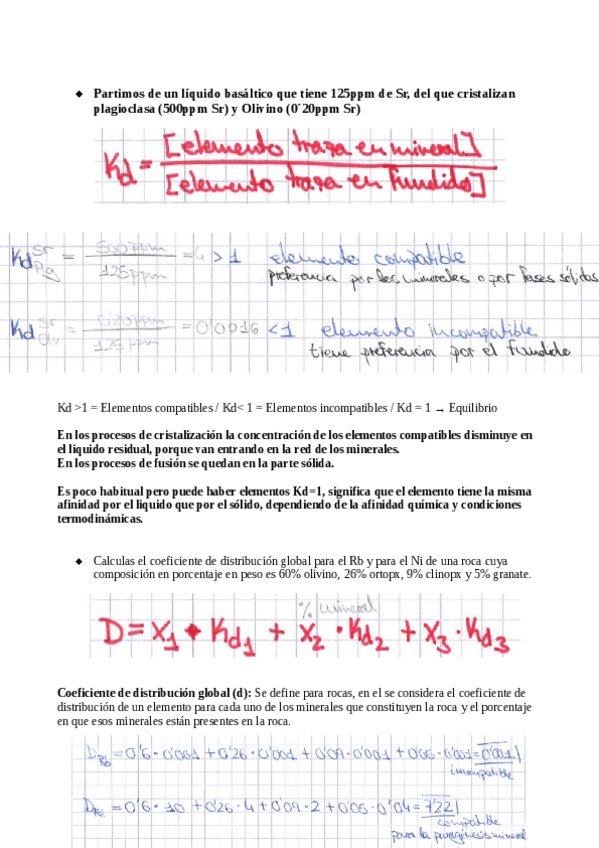 Partimos de un líquido basáltico que tiene 125ppm de Sr, del que cristalizan
plagioclasa (500ppm Sr) y Olivino (0´20ppm Sr)
Kd = [elemento traza en mineral] / [elemento traza en fundido]
Kd Sr Plg = 500ppm / 125ppm = 4 > 1 elemento compatible
preferencia por los minerales o por fases sólidas
Kd Sr Olv = 0'20ppm / 125ppm = 0'0016 < 1 elemento incompatible
tiene preferencia por el fundido
Kd >1 = Elementos compatibles / Kd< 1 = Elementos incompatibles / Kd = 1 → Equilibrio
En los procesos de cristalización la concentración de los elementos compatibles disminuye en
el liquido residual, porque van entrando en la red de los minerales.
En los procesos de fusión se quedan en la parte sólida.
Es poco habitual pero puede haber elementos Kd=1, significa que el elemento tiene la misma
afinidad por el liquido que por el sólido, dependiendo de la afinidad química y condiciones
termodinámicas.
Calculas el coeficiente de distribución global para el Rb y para el Ni de una roca cuya
composición en porcentaje en peso es 60% olivino, 26% ortopx, 9% clinopx y 5% granate.
% mineral
D = X1 · Kd1 + X2 · Kd2 + X3 · Kd3
Coeficiente de distribución global (d): Se define para rocas, en el se considera el coeficiente de
distribución de un elemento para cada uno de los minerales que constituyen la roca y el porcentaje
en que esos minerales están presentes en la roca.
DRb = 0'6 · 0'001 + 0'26 · 0'001 + 0'09 · 0'001 + 0'05 · 0'001 = 0'001
incompatible
DNi = 0'6 · 10 + 0'26 · 4 + 0'09 · 2 + 0'05 · 0'04 = 7'22
compatible
para la paragénesis mineral